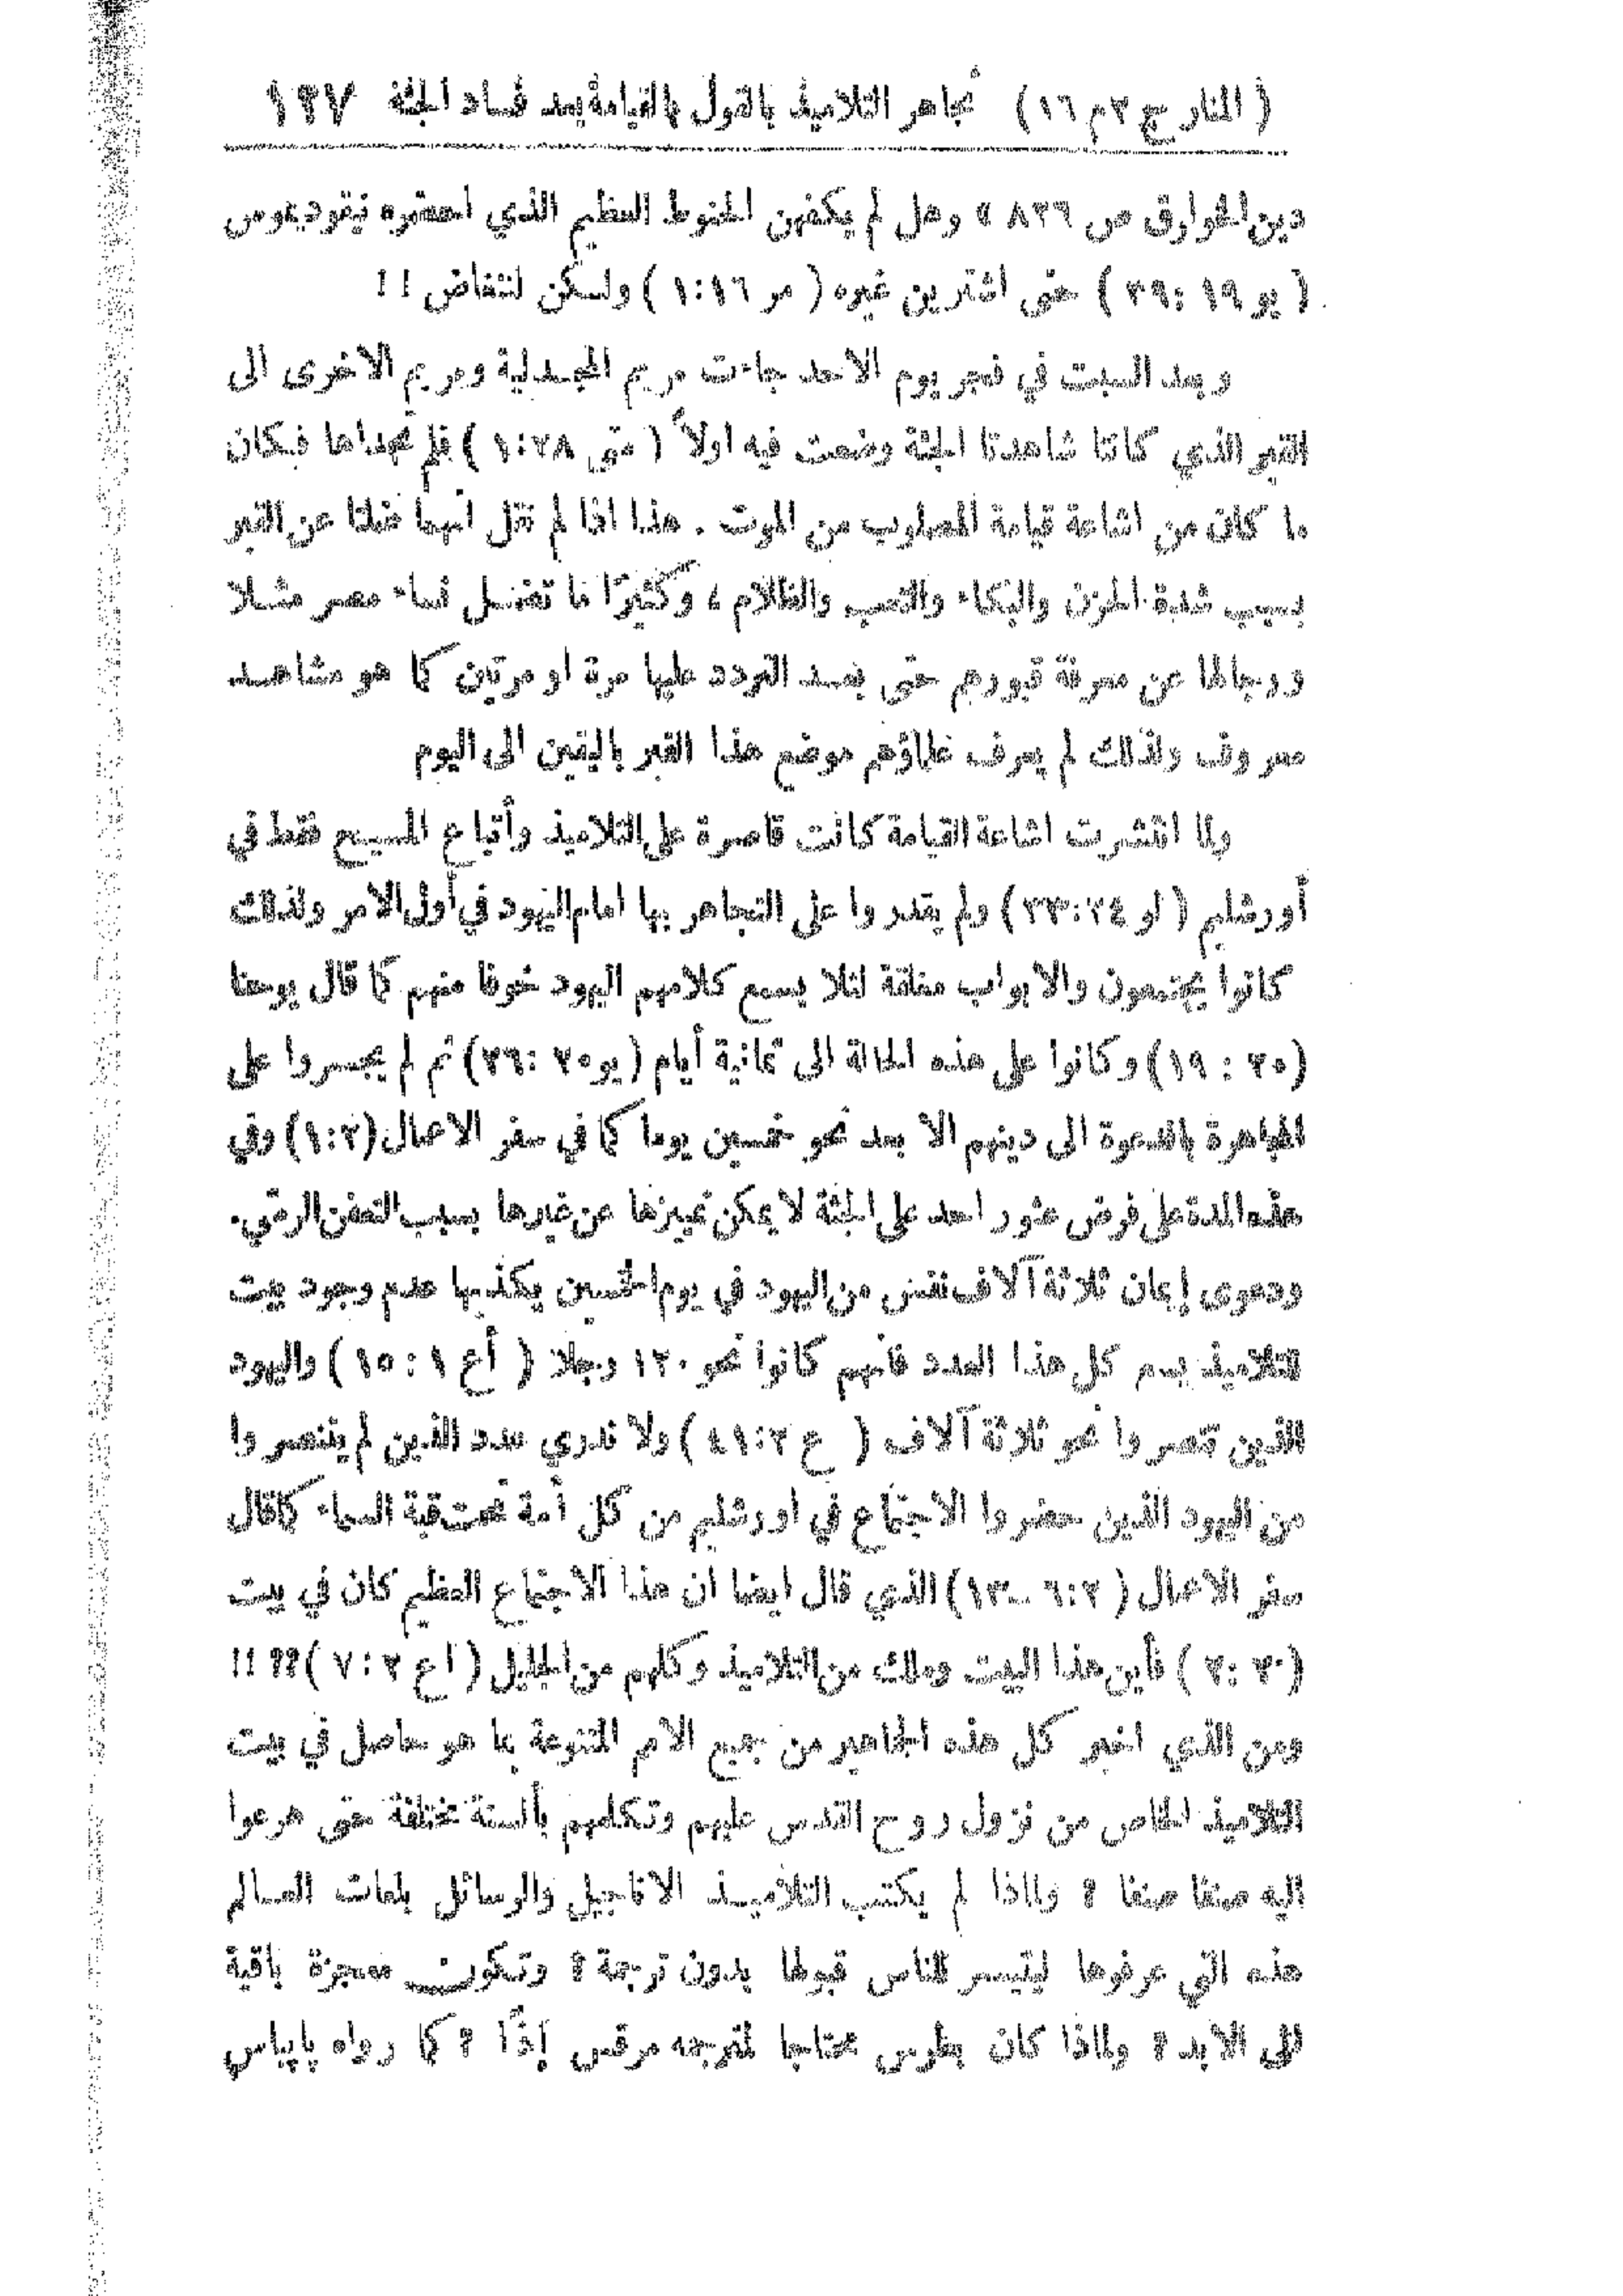 ( المنار ج ٢ م ١٦ ) تجاهر التلاميذ بالقول بالقيامة بعد فساد الجثة ١٢٧
دين الخوارق ص ٨٢٦ » وهل لم يكفهن الحنوط العظيم الذي احضره نيقوديموس
( يو ١٩ : ٣٩ ) حتى اشترين غيره ( مر ١٦ : ١ ) ولسكن لنتغاض ! !
وبعد السبت في فجر يوم الاحد جاءت مريم المجدلية ومريم الاخرى الى
القبر الذي كانتا شاهدتا الجثة وضعت فيه اولاً ( متى ٢٨ : ١ ) فلم تجداها فكان
ما كان من اشاعة قيامة المصلوب من الموت . هذا اذا لم نقل انهما ضلتا عن القبر
بسبب شدة الحزن والبكاء والتعب والظلام ، وكثيرًا ما تضل نساء مصر مثلا
ورجالها عن معرفة قبورهم حتى بعد التردد عليها مرة او مرتين كما هو مشاهد
معروف ولذلك لم يعرف علماؤهم موضع هذا القبر باليقين الى اليوم
ولما انتشرت اشاعة القيامة كانت قاصرة على التلاميذ وأتباع المسيح فقط في
أورشليم ( لو ٢٤ : ٣٣ ) ولم يقدروا على التجاهر بها امام اليهود في أول الامر ولذلك
كانوا يجتمعون والابواب مغلقة لئلا يسمع كلامهم اليهود خوفا منهم كما قال يوحنا
( ٢٠ : ١٩ ) وكانوا على هذه الحالة الى ثمانية أيام ( يو ٢٠ : ٢٦ ) ثم لم يجسروا على
المجاهرة بالدعوة الى دينهم الا بعد نحو خمسين يوما كما في سفر الاعمال ( ٢ : ١ ) وفي
هذه المدة على فرض عثور احد على الجثة لا يمكن تمييزها عن غيرها بسبب التعفن الرمي.
ودعوى إيمان ثلاثة آلاف نفس من اليهود في يوم الخمسين يكذبها عدم وجود بيت
للتلاميذ يسع كل هذا العدد فانهم كانوا نحو ١٢٠ رجلا ( أع ١ : ١٥ ) واليهود
الذين تنصروا نحو ثلاثة آلاف ( ع ٢ : ٤١ ) ولا ندري عدد الذين لم يتنصروا
من اليهود الذين حضروا الاجتماع في اورشليم من كل أمة تحت قبة السماء كما قال
سفر الاعمال ( ٢ : ٦ - ١٣ ) الذي قال ايضا ان هذا الاجتماع العظيم كان في بيت
( ٢ : ٢ ) فأين هذا البيت وملك من التلاميذ وكلهم من الجليل ( اع ٢ : ٧ ) ؟؟ !!
ومن الذي اخبر كل هذه الجماهير من جميع الامم المتنوعة بما هو حاصل في بيت
التلاميذ الخاص من نزول روح القدس عليهم وتكلمهم بألسنة مختلفة حتى هرعوا
اليه صنفا صنفا ؟ ولماذا لم يكتب التلاميذ الاناجيل والرسائل بلغات العالم
هذه التي عرفوها ليتيسر للناس قبولها بدون ترجمة ؟ وتكون معجزة باقية
الى الابد ؟ ولماذا كان بطرس محتاجا لمترجمه مرقس إذًا ؟ كما رواه پاپياس